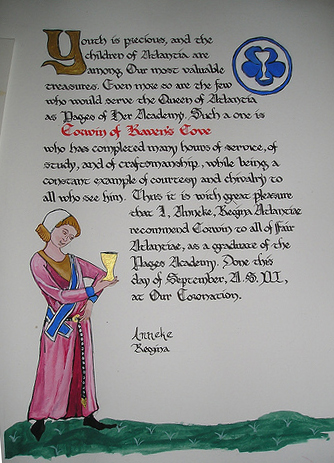 Youth is precious, and the
children of Atlantia are
among Our most valuable
treasures. Even more so are the few
who would serve the Queen of Atlantia
as Pages of Her Academy. Such a one is
Corwin of Raven's Cove
who has completed many hours of service, of
study, and of craftsmanship, while being a
constant example of courtesy and chivalry to
all who see him. Thus it is with great pleasure
that I, Anneke, Regina Atlantiae
recommend Corwin to all of fair
Atlantiae, as a graduate of the
Pages Academy. Done this
day of September, A.S.
at Our Coronation.
Anneke
Regina